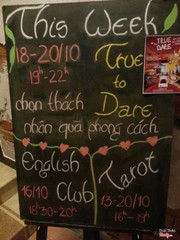 This Week
18-20/10
19h-22h
True
to
Dare
chọn thách
nhận quà phong cách
English
Club
16/10
18h30-20h
Tarot
13-20/10
16h-19h
TRUE
DARE